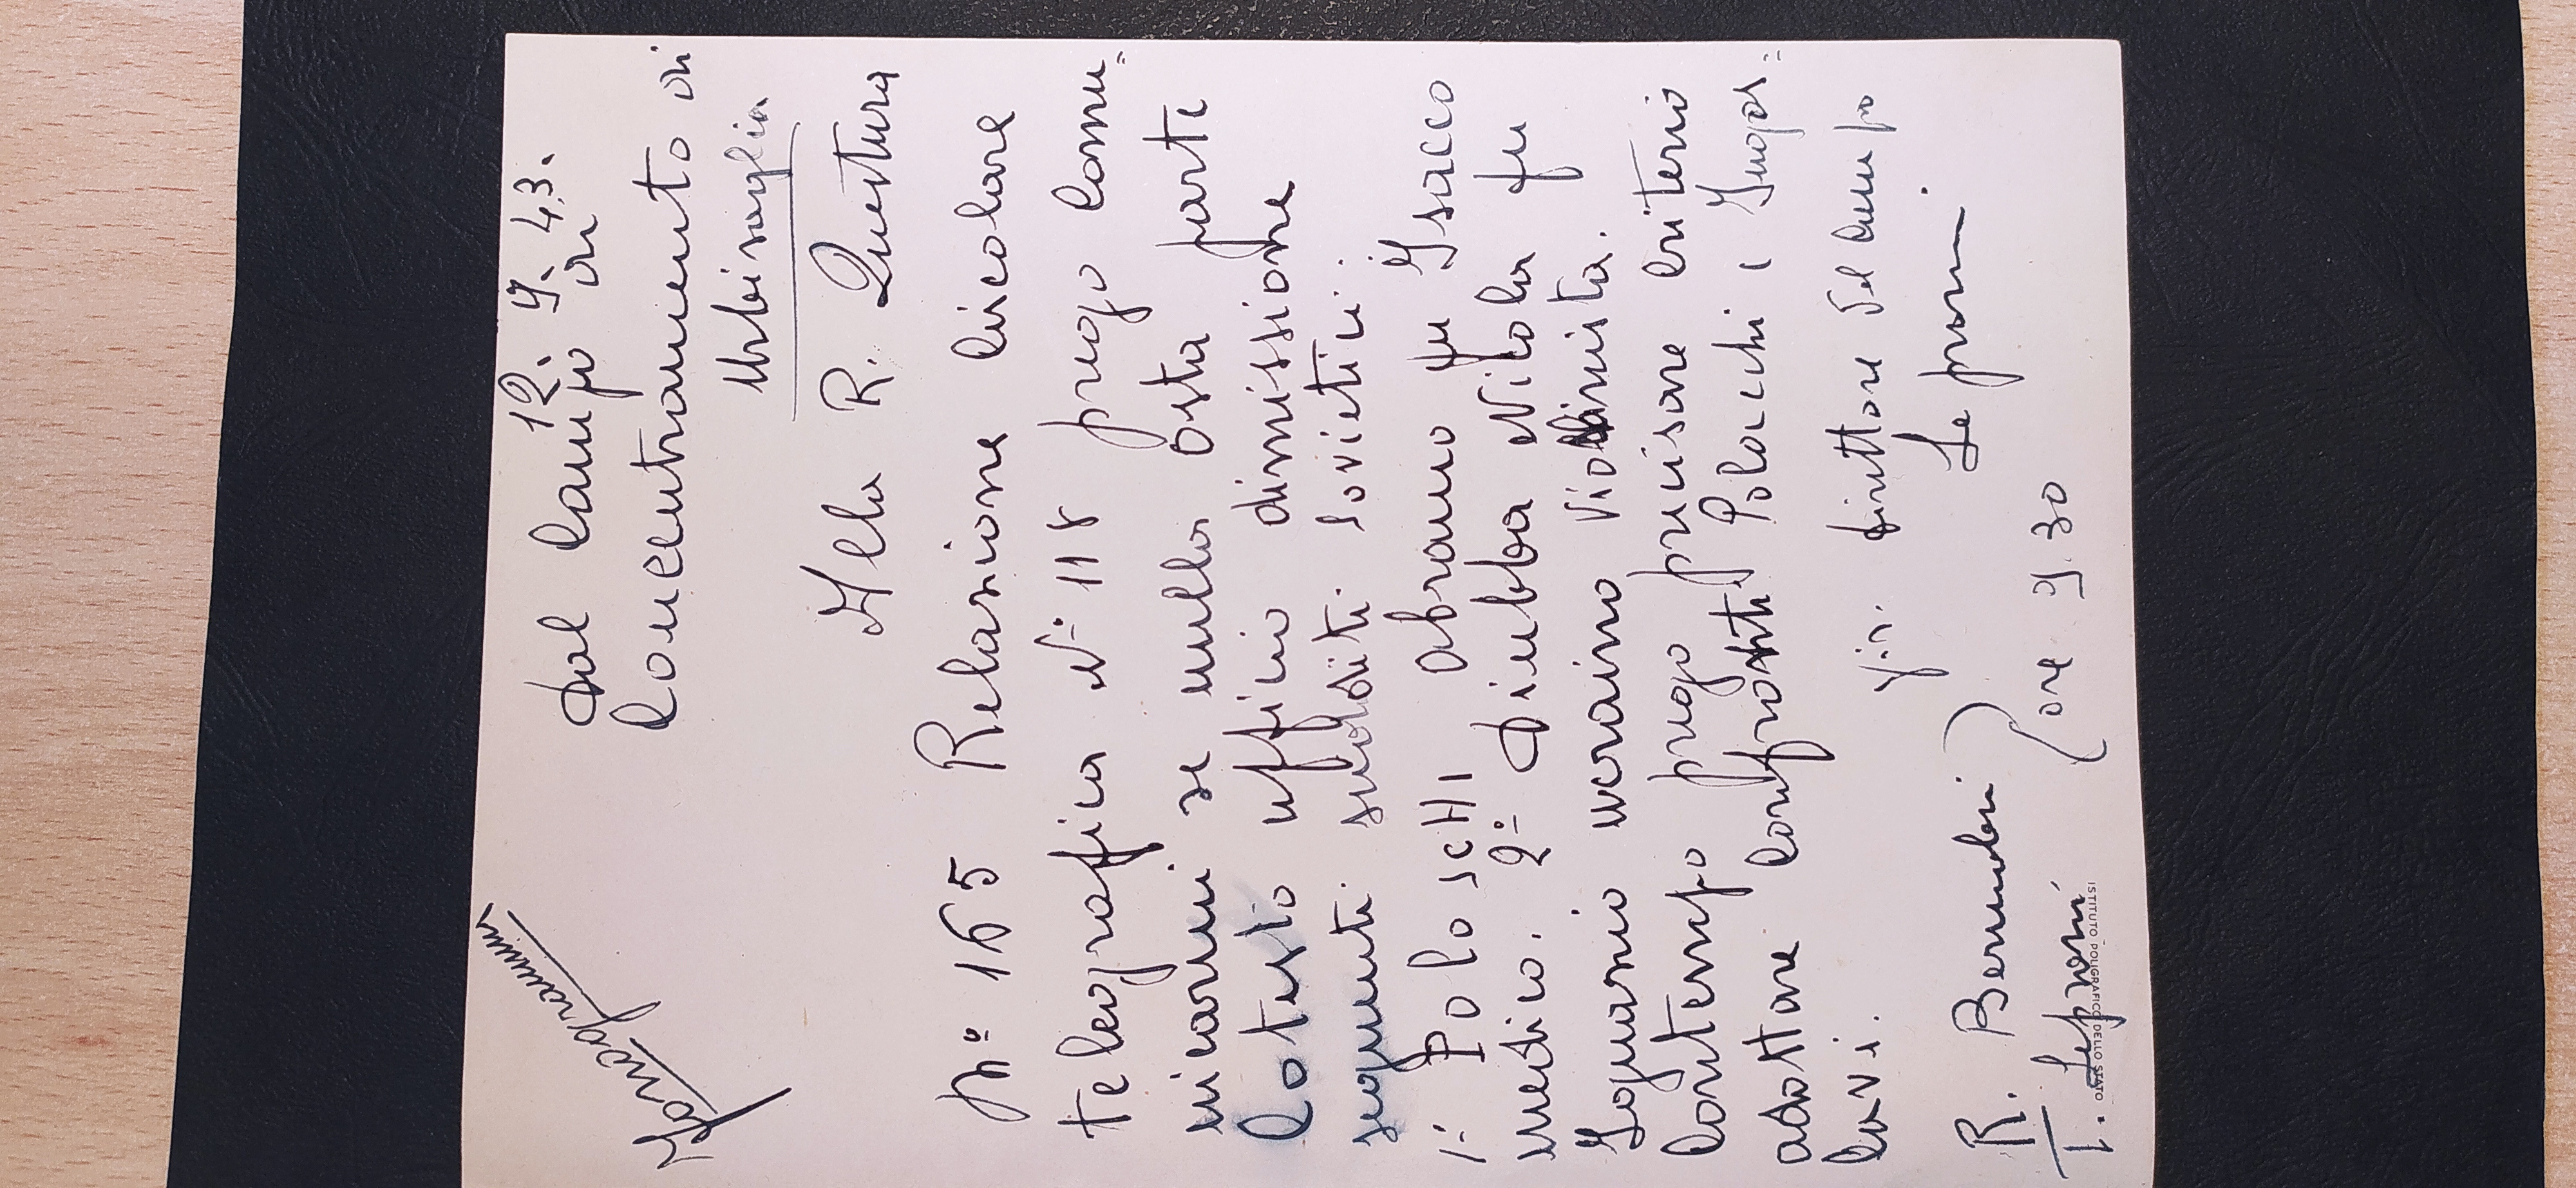 Fonogramma
12. 9. 43.
Dal Campo di
Concentramento di
Urbisaglia
Alla R. Questura
N° 165 Relazione circolare
telegrafica N° 118 prego comu=
nicarmi se nulla osta parte
cotesto ufficio dimissione
seguenti sudditi sovietici:
1°= POLOSCHI Abramo fu Isacco
medico. 2°= Diubba Nicola fu
ucraino violinista.
Contempo prego precisare criterio
adottare confronti Polacchi e Jugos=
lavi.
Direttore del Campo
Leproni.
R. Bernuboni
T. Leproni
(ore 9.30
ISTITUTO POLIGRAFICO DELLO STATO